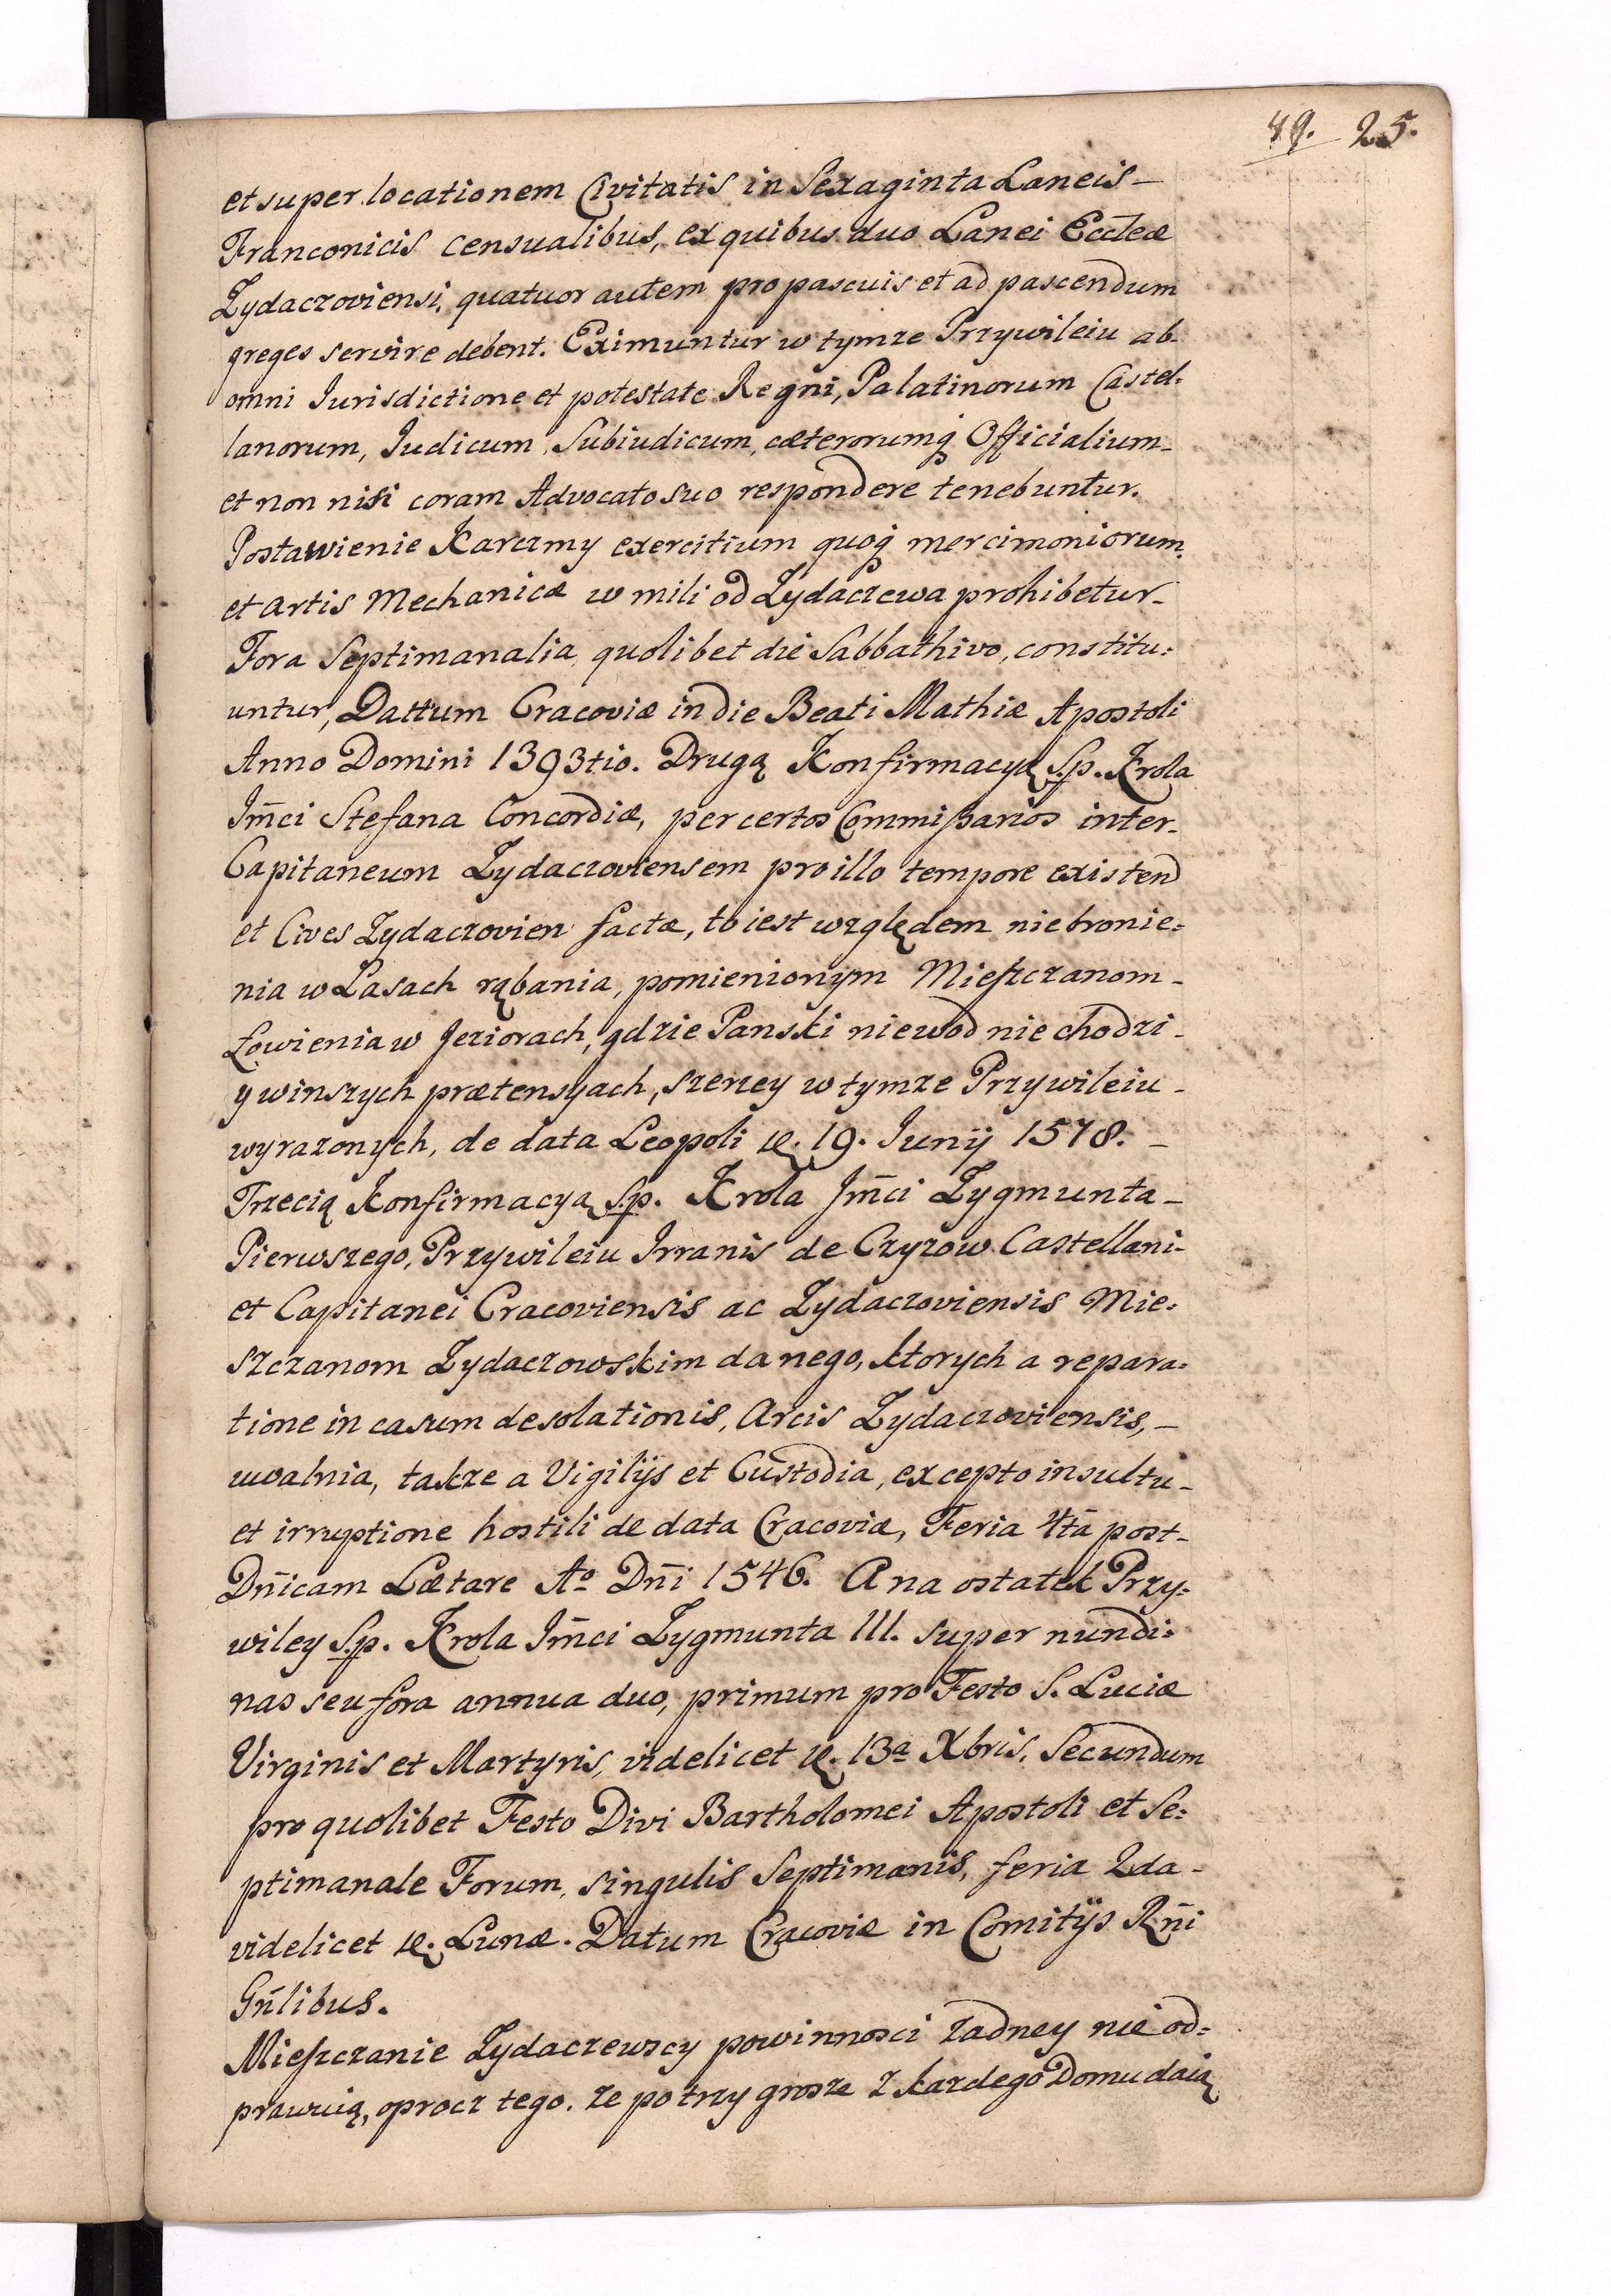 49. 25.
et super locationem Civitatis in Sexaginta Laneis –
Franconicis censualibus, ex quibus duo Lanei Eccłeæ
Zydaczoviensi, quatuor autem pro pascuis et ad pascendum
greges servire debent. Eximuntur w tymze Przywileiu ab
omni Iurisdictione et potestate Regni, Palatinorum Castel=
lanorum, Iudicum, Subiudicum, cæterorumq Officialium –
et non nisi coram Advocato suo respondere tenebuntur.
Postawienie Karczmy exercitium quoq mercimoniorum
et artis Mechanicæ w mili od Zydaczewa prohibetur –
Fora Septimanalia quolibet die Sabbathivo, constitu=
untur, Dattum Cracoviæ in die Beati Mathiæ Apostoli
Anno Domini 1393tio. Drugą Konfirmacyą S.p. Krola
Jm̄ci Stefana Concordiæ, per certos Commißarios inter –
Capitaneum Zydaczoviensem pro illo tempore existend
et Cives Zydaczovien factæ, to iest względem niebronie=
nia w Lasach rąbania, pomienionym Mießczanom –
Łowienia w Jeziorach, gdzie Panski niewod nie chodzi –
y winszych prætensyach, szerzey w tymze Przywileiu –
wyrazonych, de data Leopoli d. 19. Iunij 1578. –
Trzecią Konfirmacyą S.p. Krola Jm̄ci Zygmunta –
Pierwszego, Przywileiu Irranis de Czyzow Castellani –
et Capitanei Cracoviensis ac Zydaczoviensis Mie=
szczanom Zydaczowskim danego, ktorych a repara=
tione in casum desolationis, Arcis Zydaczoviensis, –
uwalnia, takze a Vigilijs et Custodia, excepto insultu –
et irruptione hostili de data Cracoviæ, Feria 4tā post –
Dn̄icam Lætare Ao Dn̄i 1546. A na ostatek Przy=
wiley S.p. Krola Jm̄ci Zygmunta III. super nundi=
nas seu fora annua duo, primum pro Festo S. Luciæ
Virginis et Martyris, videlicet d. 13a Xbris, Secundum
pro quolibet Festo Divi Bartholomei Apostoli et Se=
ptimanale Forum, singulis Septimanis, feria 2da –
videlicet d. Lunæ. Datum Cracoviæ in Comitijs Rn̄i
Gn̄libus.
Mießczanie Zydaczewscy powinnosci zadney nie od=
prawuią, oprocz tego, ze po trzy grosze z kazdego Domu daią